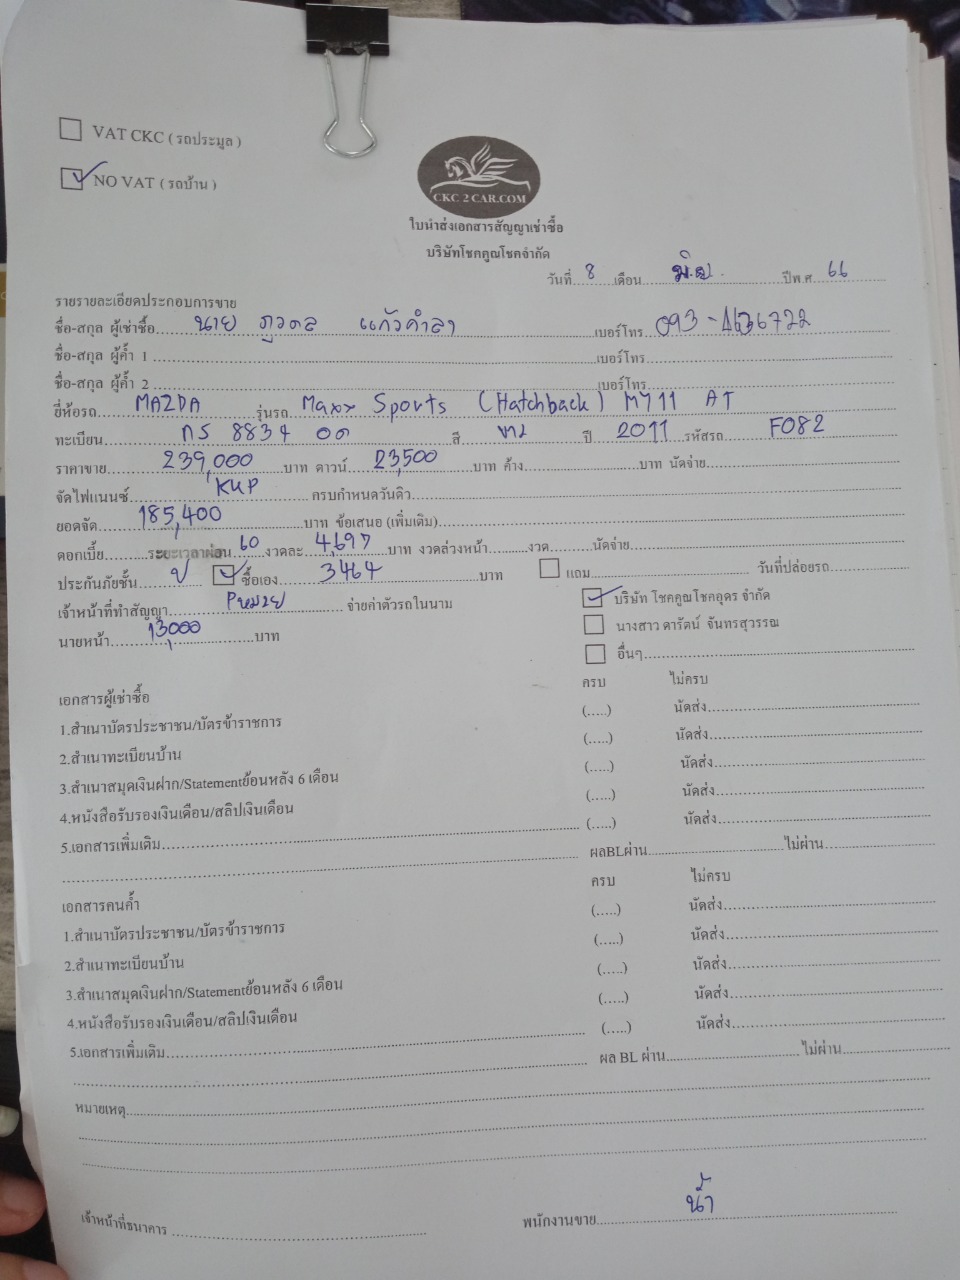 VAT CKC ( รถประมูล )
NO VAT ( รถบ้าน )
CKC 2 CAR.COM
ใบนำส่งเอกสารสัญญาเช่าซื้อ
บริษัทโชคคูณโชคจำกัด
วันที่ 8 เดือน มิ.ย. ปีพ.ศ. 66
รายรายละเอียดประกอบการขาย
ชื่อ-สกุล ผู้เช่าซื้อ นาย ภูวดล แก้วคำลา เบอร์โทร 093-4636722
ชื่อ-สกุล ผู้ค้ำ 1 เบอร์โทร
ชื่อ-สกุล ผู้ค้ำ 2 เบอร์โทร
ยี่ห้อรถ MAZDA รุ่นรถ Maxx Sports (Hatchback) MY11 AT
ทะเบียน กร 8834 อด สี ขาว ปี 2011 รหัสรถ F082
ราคาขาย 239,000 บาท ดาวน์ 23,500 บาท ค้าง บาท นัดจ่าย
จัดไฟแนนซ์ KKP ครบกำหนดวันดิว
ยอดจัด 185,400 บาท ข้อเสนอ (เพิ่มเติม)
ดอกเบี้ย ระยะเวลาผ่อน 60 งวดละ 4,697 บาท งวดล่วงหน้า งวด นัดจ่าย
ประกันภัยชั้น ซื้อเอง 3464 บาท แถม วันที่ปล่อยรถ
เจ้าหน้าที่ทำสัญญา จ่ายค่าตัวรถในนาม บริษัท โชคคูณโชคอุดร จำกัด
นายหน้า 13,000 บาท นางสาว ดารัตน์ จันทรสุวรรณ
อื่นๆ
เอกสารผู้เช่าซื้อ ครบ ไม่ครบ
1.สำเนาบัตรประชาชน/บัตรข้าราชการ (.....) นัดส่ง
2.สำเนาทะเบียนบ้าน (.....) นัดส่ง
3.สำเนาสมุดเงินฝาก/Statementย้อนหลัง 6 เดือน (.....) นัดส่ง
4.หนังสือรับรองเงินเดือน/สลิปเงินเดือน (.....) นัดส่ง
5.เอกสารเพิ่มเติม (.....) นัดส่ง
ผลBLผ่าน ไม่ผ่าน
เอกสารคนค้ำ ครบ ไม่ครบ
1.สำเนาบัตรประชาชน/บัตรข้าราชการ (.....) นัดส่ง
2.สำเนาทะเบียนบ้าน (.....) นัดส่ง
3.สำเนาสมุดเงินฝาก/Statementย้อนหลัง 6 เดือน (.....) นัดส่ง
4.หนังสือรับรองเงินเดือน/สลิปเงินเดือน (.....) นัดส่ง
5.เอกสารเพิ่มเติม (.....) นัดส่ง
ผล BL ผ่าน ไม่ผ่าน
หมายเหตุ
เจ้าหน้าที่ธนาคาร พนักงานขาย น้ำ